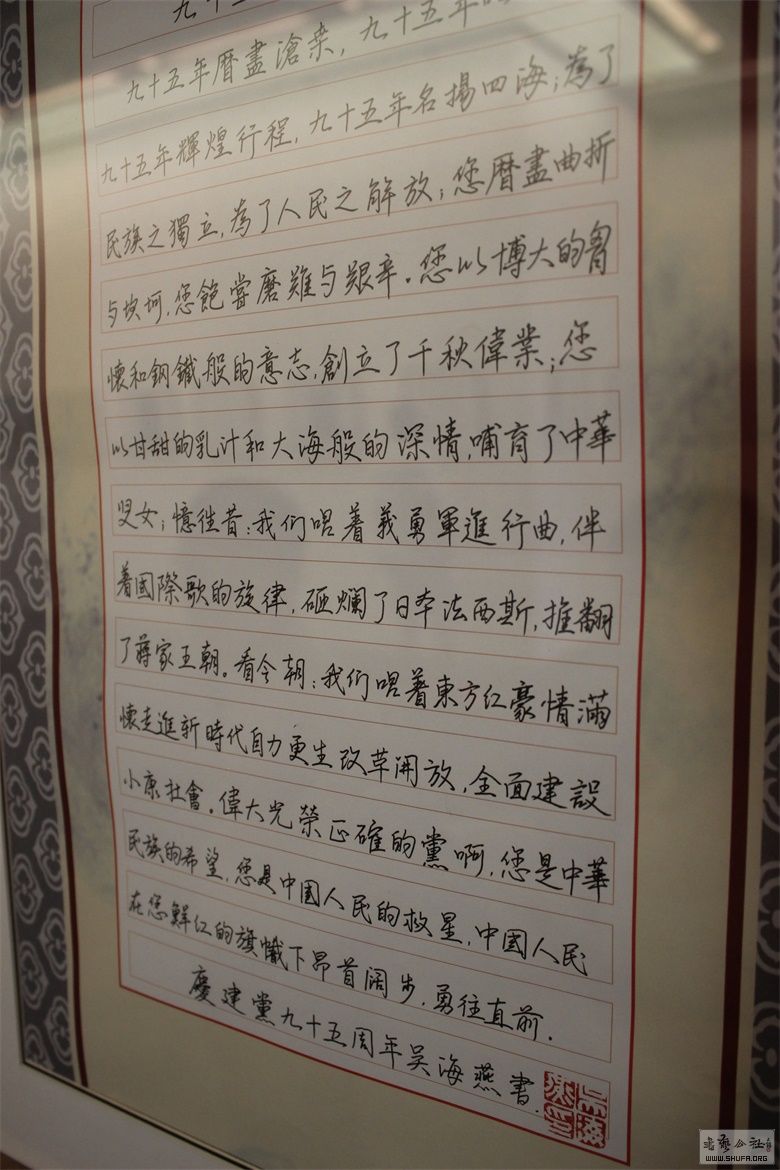 九十五
九十五年曆盡滄桑，九十五年
九十五年輝煌行程，九十五年名揚四海；為了
民族之獨立，為了人民之解放；您曆盡曲折
与坎坷，您飽嘗磨難与艱辛。您以博大的胷
懷和鋼鐵般的意志，創立了千秋偉業；您
以甘甜的乳汁和大海般的深情，哺育了中華
兒女；憶往昔：我们唱着義勇軍進行曲，伴
着國際歌的旋律，砸爛了日本法西斯，推翻
了蔣家王朝。看今朝：我们唱着東方红豪情滿
懷走進新時代自力更生改革開放，全面建設
小康社會。偉大光榮正確的黨啊，您是中華
民族的希望，您是中國人民的救星，中國人民
在您鮮红的旗幟下昂首闊步，勇往直前．
慶建黨九十五周年吴海燕書．
WWW.SHUFA.ORG